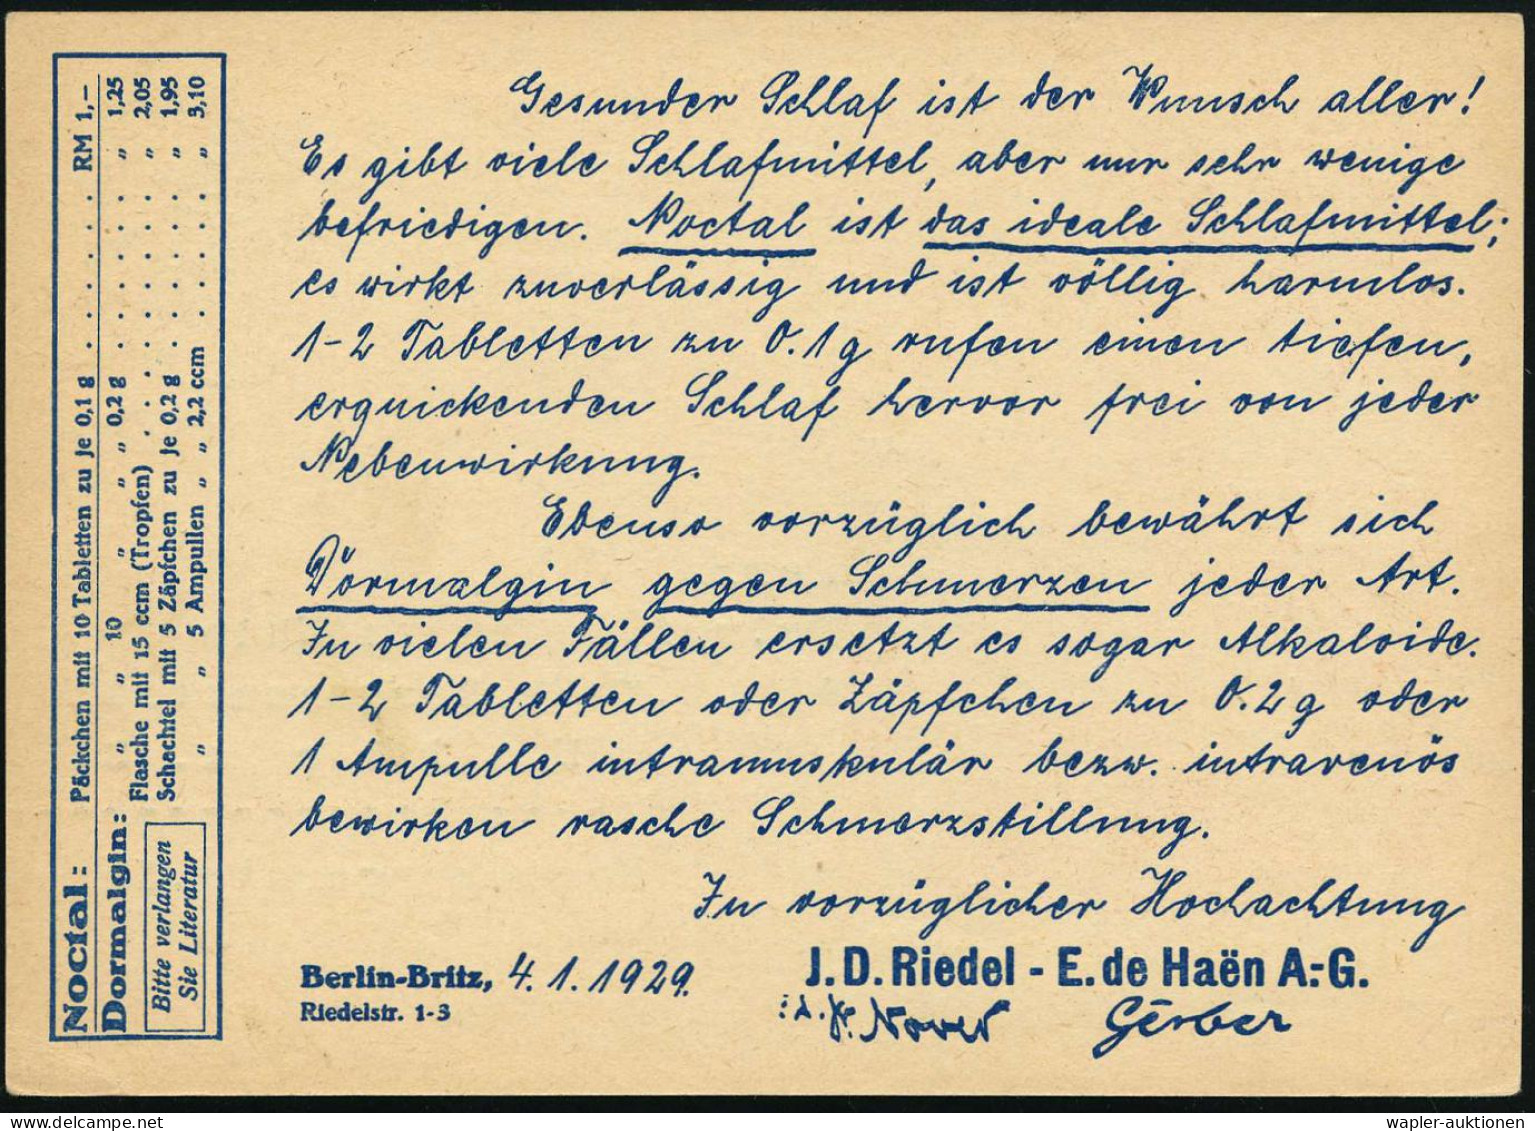 Gesunder Schlaf ist der Wunsch aller!
Es gibt viele Schlafmittel, aber nur sehr wenige
befriedigen. Noctal ist das ideale Schlafmittel;
es wirkt zuverlässig und ist völlig harmlos.
1-2 Tabletten zu 0.1g rufen einen tiefen,
erquickenden Schlaf hervor frei von jeder
Nebenwirkung.
Ebenso vorzüglich bewährt sich
Dormalgin gegen Schmerzen jeder Art.
In vielen Fällen ersetzt es sogar Alkaloide.
1-2 Tabletten oder Zäpfchen zu 0.2g oder
1 Ampulle intramuskulär bezw. intravenös
bewirken rasche Schmerzstillung.
In vorzüglicher Hochachtung
Berlin-Britz, 4.1.1929.
Riedelstr. 1-3
J. D. Riedel - E. de Haën A.-G.
Gerber
Noctal: Päckchen mit 10 Tabletten zu je 0,1 g . . . . . . RM 1,—
Dormalgin: „ „ 10 „ „ „ 0,2 g . . . . . . „ 1,25
Flasche mit 15 ccm (Tropfen) . . . . . . . . „ 2,05
Schachtel mit 5 Zäpfchen zu je 0,2 g . . . . . . „ 1,95
„ „ 5 Ampullen „ „ 2,2 ccm . . . . . „ 3,10
Bitte verlangen
Sie Literatur
wapler-auktionen